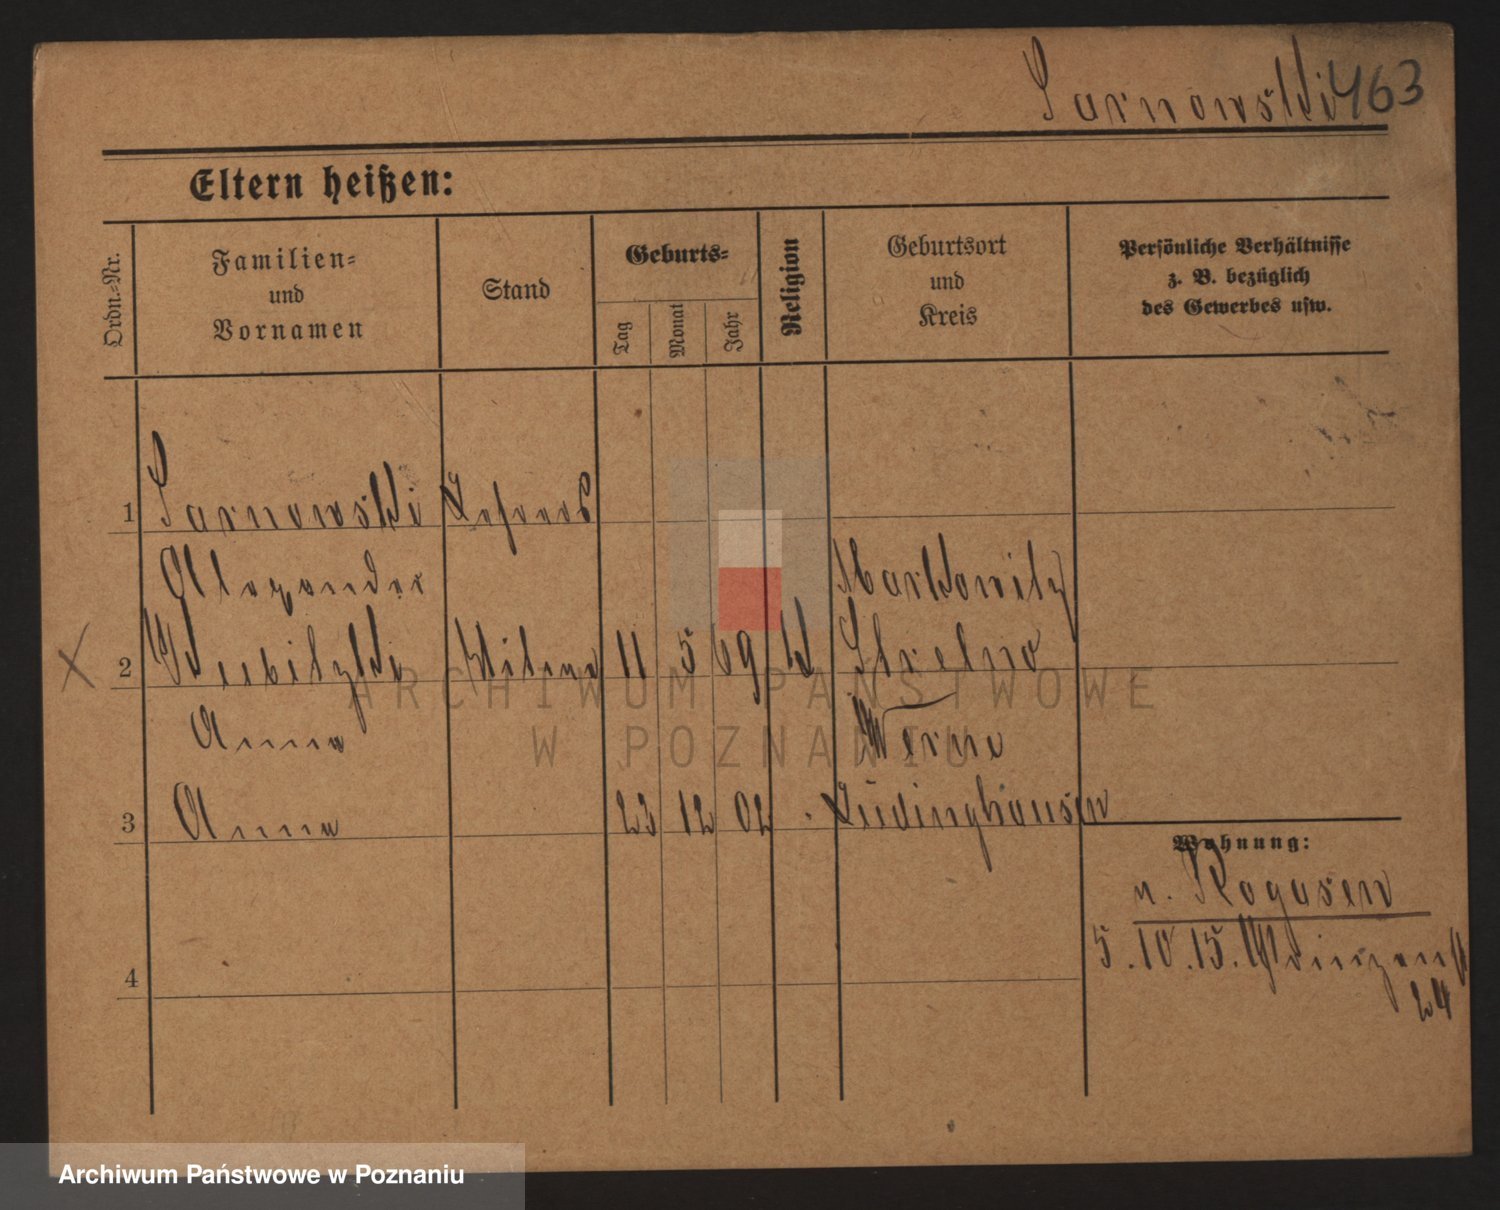 Sarnowski 463
Eltern heißen:
Ordn.=Nr.
Familien=
und
Vornamen
Stand
Geburts=
Tag
Monat
Jahr
Religion
Geburtsort
und
Kreis
Persönliche Verhältnisse
z. B. bezüglich
des Gewerbes usw.
1 Sarnowski
Alexander Markowitz
2 11 5 69 k Strelno
Anna Werne
3 Anna 23 12 02 Lüdinghausen
Wohnung:
n. Rogasen
5.10.15.
24
4
ARCHIWUM PAŃSTWOWE
W POZNANIU
Archiwum Państwowe w Poznaniu